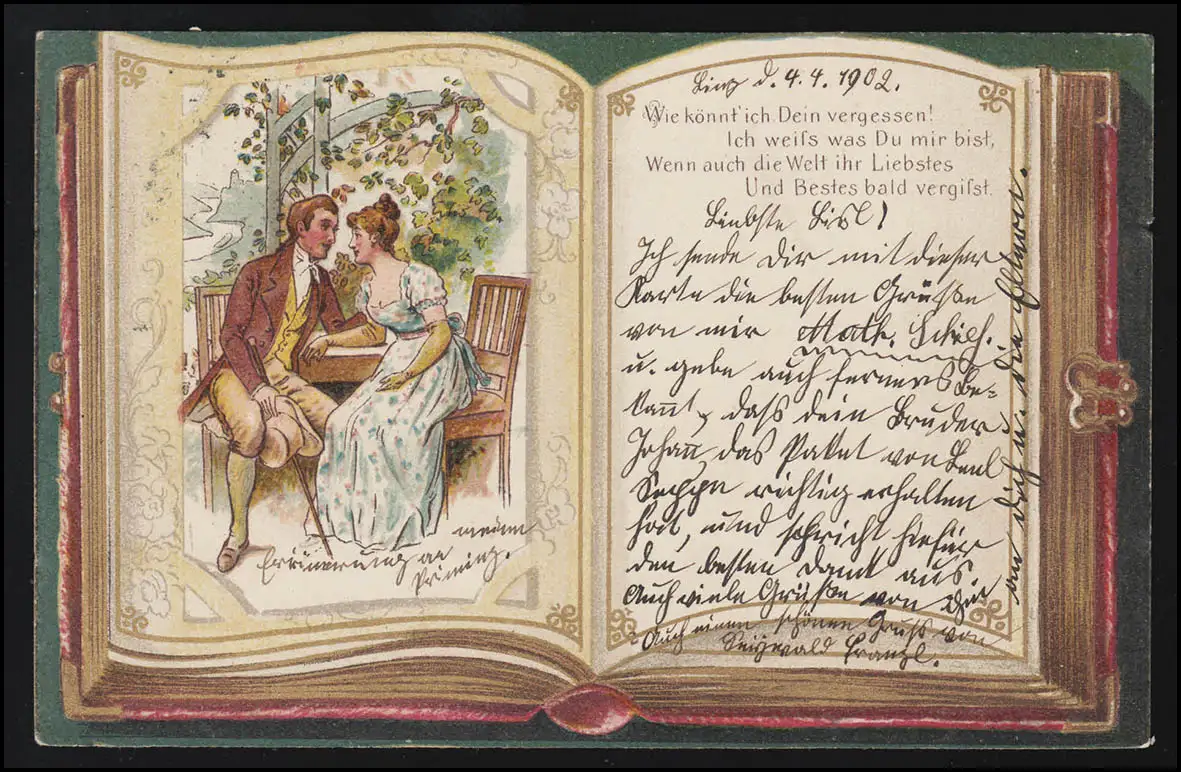 Linz d. 4.4.1902.
Wie könnt' ich Dein vergessen!
Ich weiſs was Du mir bist,
Wenn auch die Welt ihr Liebstes
Und Bestes bald vergiſst.
Liebste Lisl!
Ich sende Dir mit dieser
Karte die besten Grüße
von mir Math.
u. gebe auch ferners be-
kannt, daß dein Bruder
Johann, das Paket von
Seppe richtig erhalten
hat, und spricht hiefür
den besten Dank aus.
Auch viele Grüße von
an dich u. die Eltern.
Auch einen schönen Gruß von
Franzl.
Erinnerung an meine